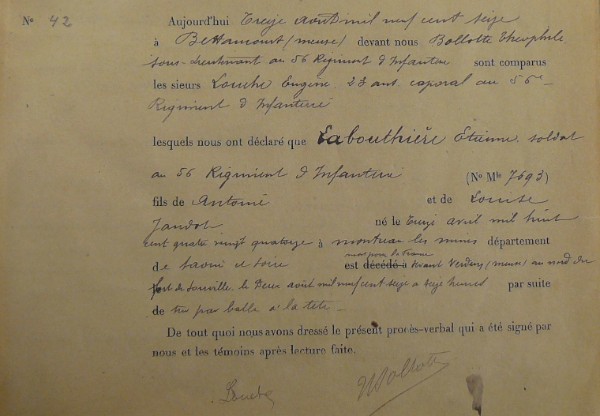 No 42 Aujourd'hui Treize août mil neuf cent seize
à Bettancourt (meuse) devant nous Ballotte Théophile
sous-lieutenant au 56 Régiment d'Infanterie sont comparus
les sieurs Louche Eugène, 23 ans, caporal au 56e
Régiment d'Infanterie
lesquels nous ont déclaré que Labouthière Etienne, soldat
au 56 Régiment d'Infanterie (No Mle 7693)
fils de Antoine et de Louise
Jandot né le Treize avril mil huit
cent quatre vingt quatorze à montceau les mines département
de Saône et Loire mort pour la France est décédé à devant Verdun (meuse) au nord du
fort de Souville, le Deux août mil neuf cent seize à seize heures par suite
de tué par balle à la tête.
De tout quoi nous avons dressé le présent procès-verbal qui a été signé par
nous et les témoins après lecture faite.
Louche Ballotte